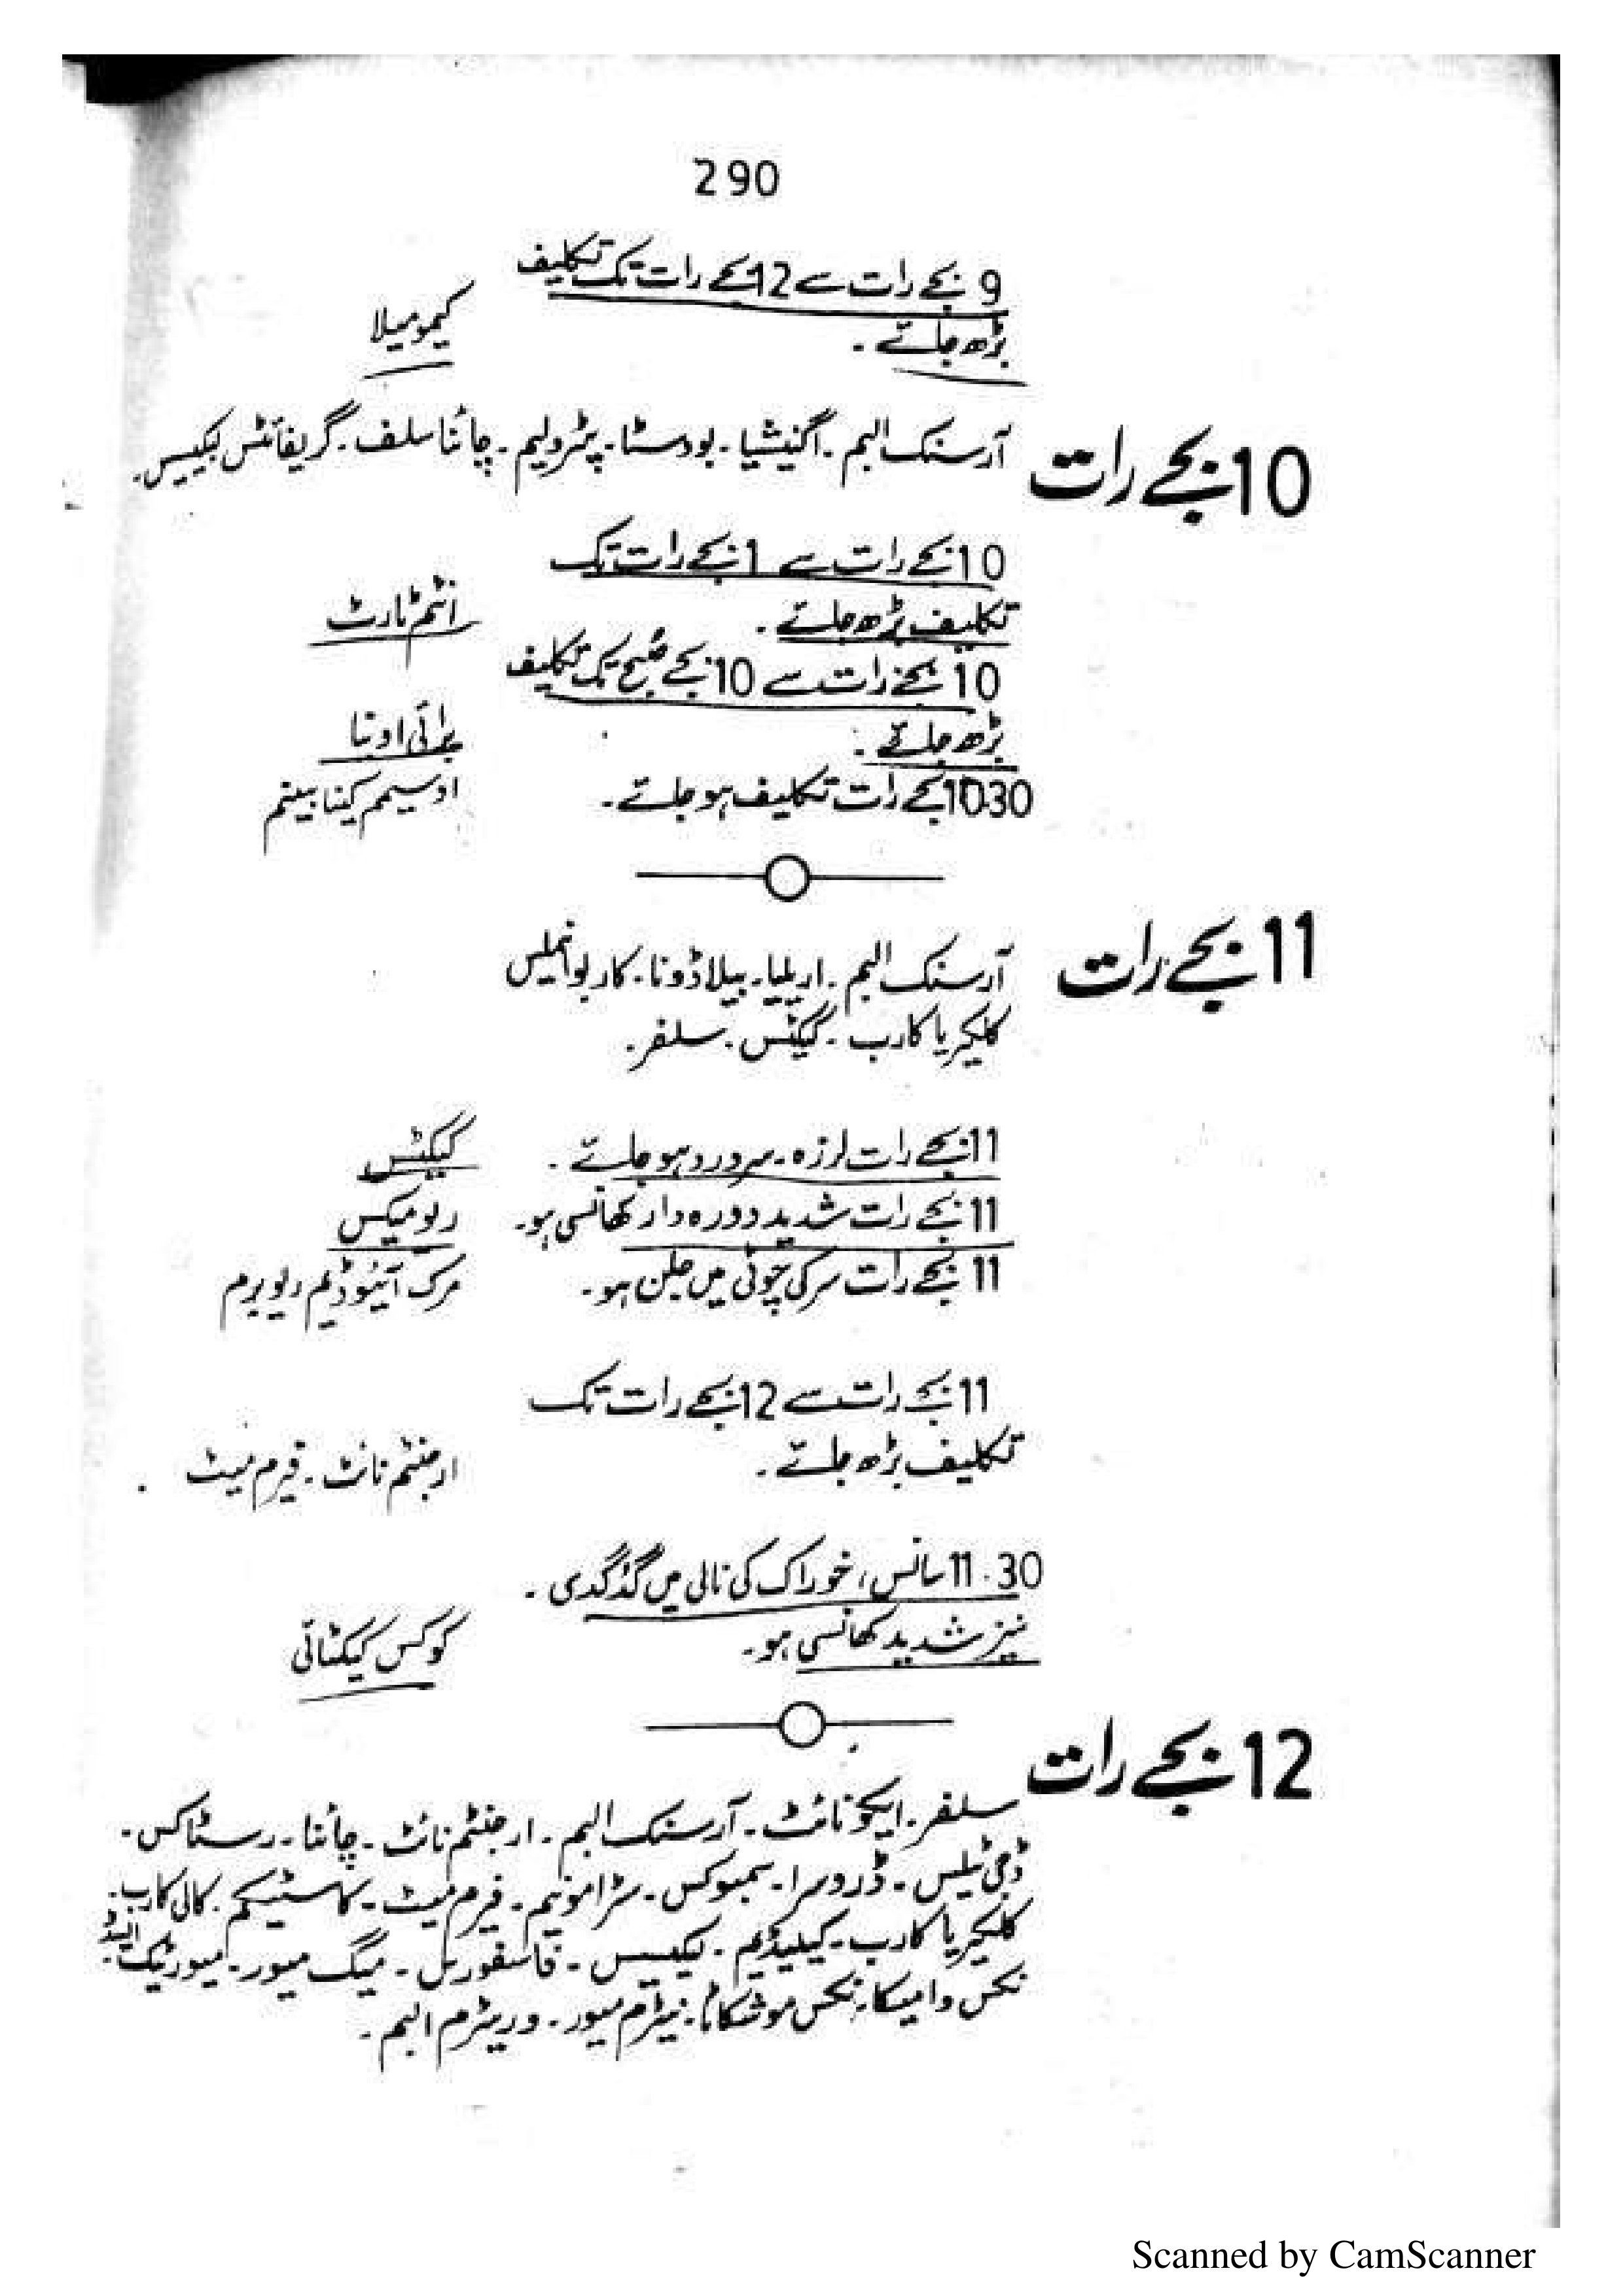 290
9 بجے رات سے 12 بجے رات تک تکلیف
بڑھ جائے ۔ کیمومیلا
10 بجے رات آرسنک البم ۔ اگنیشیا ۔ بودسٹا ۔ پٹرولیم ۔ چائنا سلف ۔ گریفائٹس لیکیسس ۔
10 بجے رات سے 1 بجے رات تک
تکلیف بڑھ جائے ۔ انٹم ٹارٹ
10 بجے رات سے 10 بجے صبح تک تکلیف
بڑھ جائے ۔ برائی اونیا
10.30 بجے رات تکلیف ہو جائے ۔ اوسیمم کینابینم
11 بجے رات آرسنک البم ۔ اریلیا ۔ بیلاڈونا ۔ کاربو انملیس
کلکیریا کارب ۔ کیکٹس ۔ سلفر ۔
11 بجے رات لرزہ ۔ سر درد ہو جائے ۔ کیکٹس
11 بجے رات شدید دورہ دار کھانسی ہو ۔ ریومیکس
11 بجے رات سر کی چوٹی میں جلن ہو ۔ مرک آئیوڈیم ریوبرم
11 بجے رات سے 12 بجے رات تک
تکلیف بڑھ جائے ۔ ارجنٹم نائٹ ۔ فیرم میٹ
11.30 سانس، خوراک کی نالی میں گدگدی ۔
نیز شدید کھانسی ہو ۔ کوکس کیکٹائی
12 بجے رات
سلفر ۔ ایکونائٹ ۔ آرسنک البم ۔ ارجنٹم نائٹ ۔ چائنا ۔ رسٹاکس ۔
ڈجی ٹیلس ۔ ڈروسرا ۔ سمبوکس ۔ سٹرامونیم ۔ فیرم میٹ ۔ کاسٹیکم ۔ کالی کارب ۔
کلکیریا کارب ۔ کیلیڈیم ۔ لیکیسس ۔ فاسفورس ۔ میگ میور ۔ میورٹیک ایسڈ ۔
نکس وامیکا ۔ نکس موشکاٹا ۔ نیٹرم میور ۔ وریٹرم البم ۔
Scanned by CamScanner